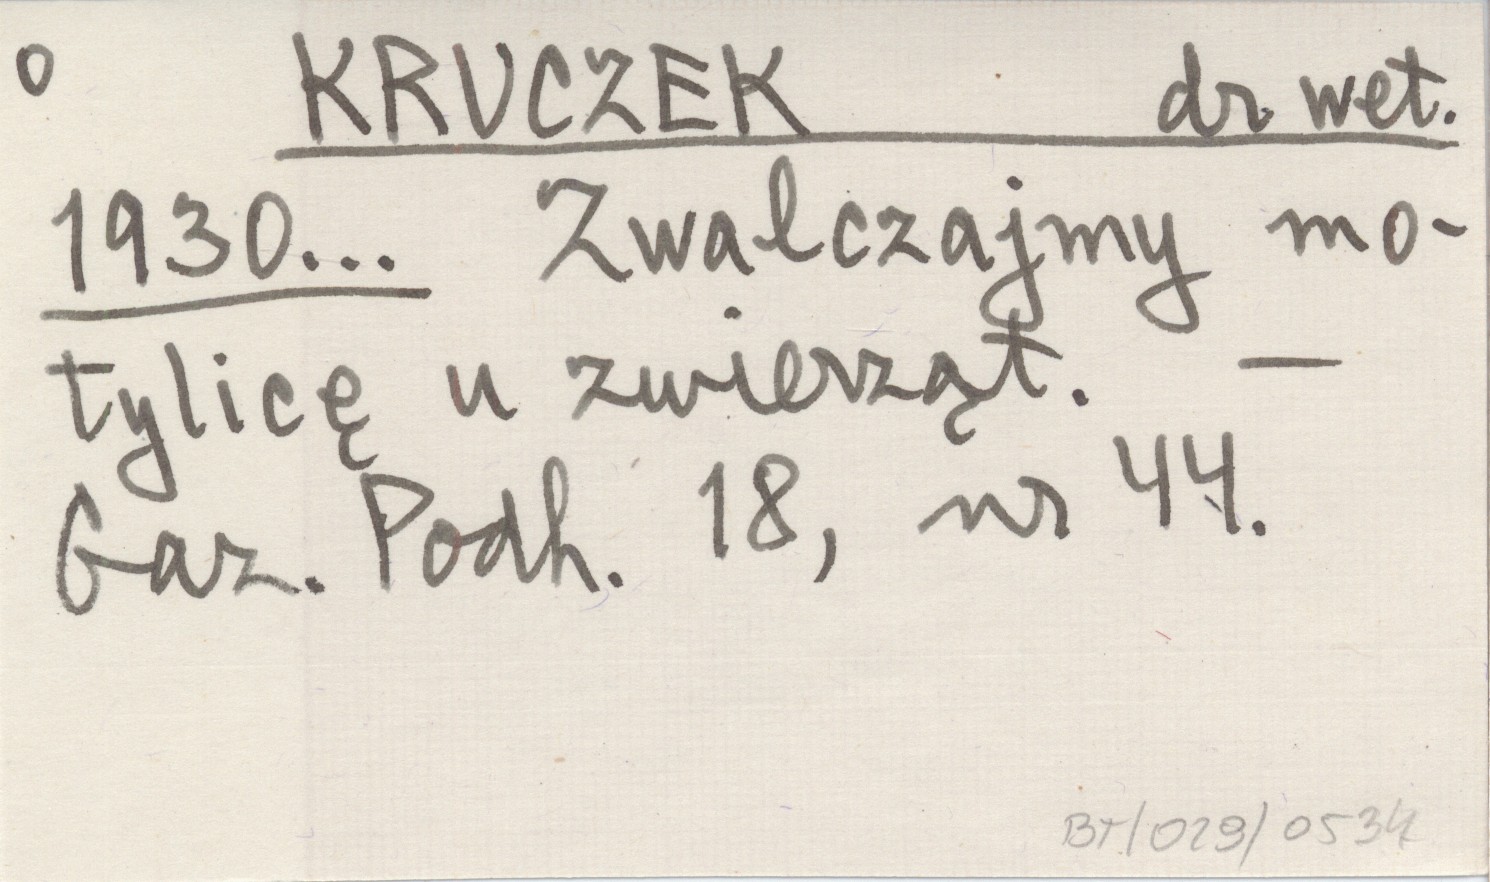 o KRUCZEK dr wet.
1930... Zwalczajmy mo-
tylicę u zwierząt. —
Gaz. Podh. 18, nr 44.
BT/029/0534